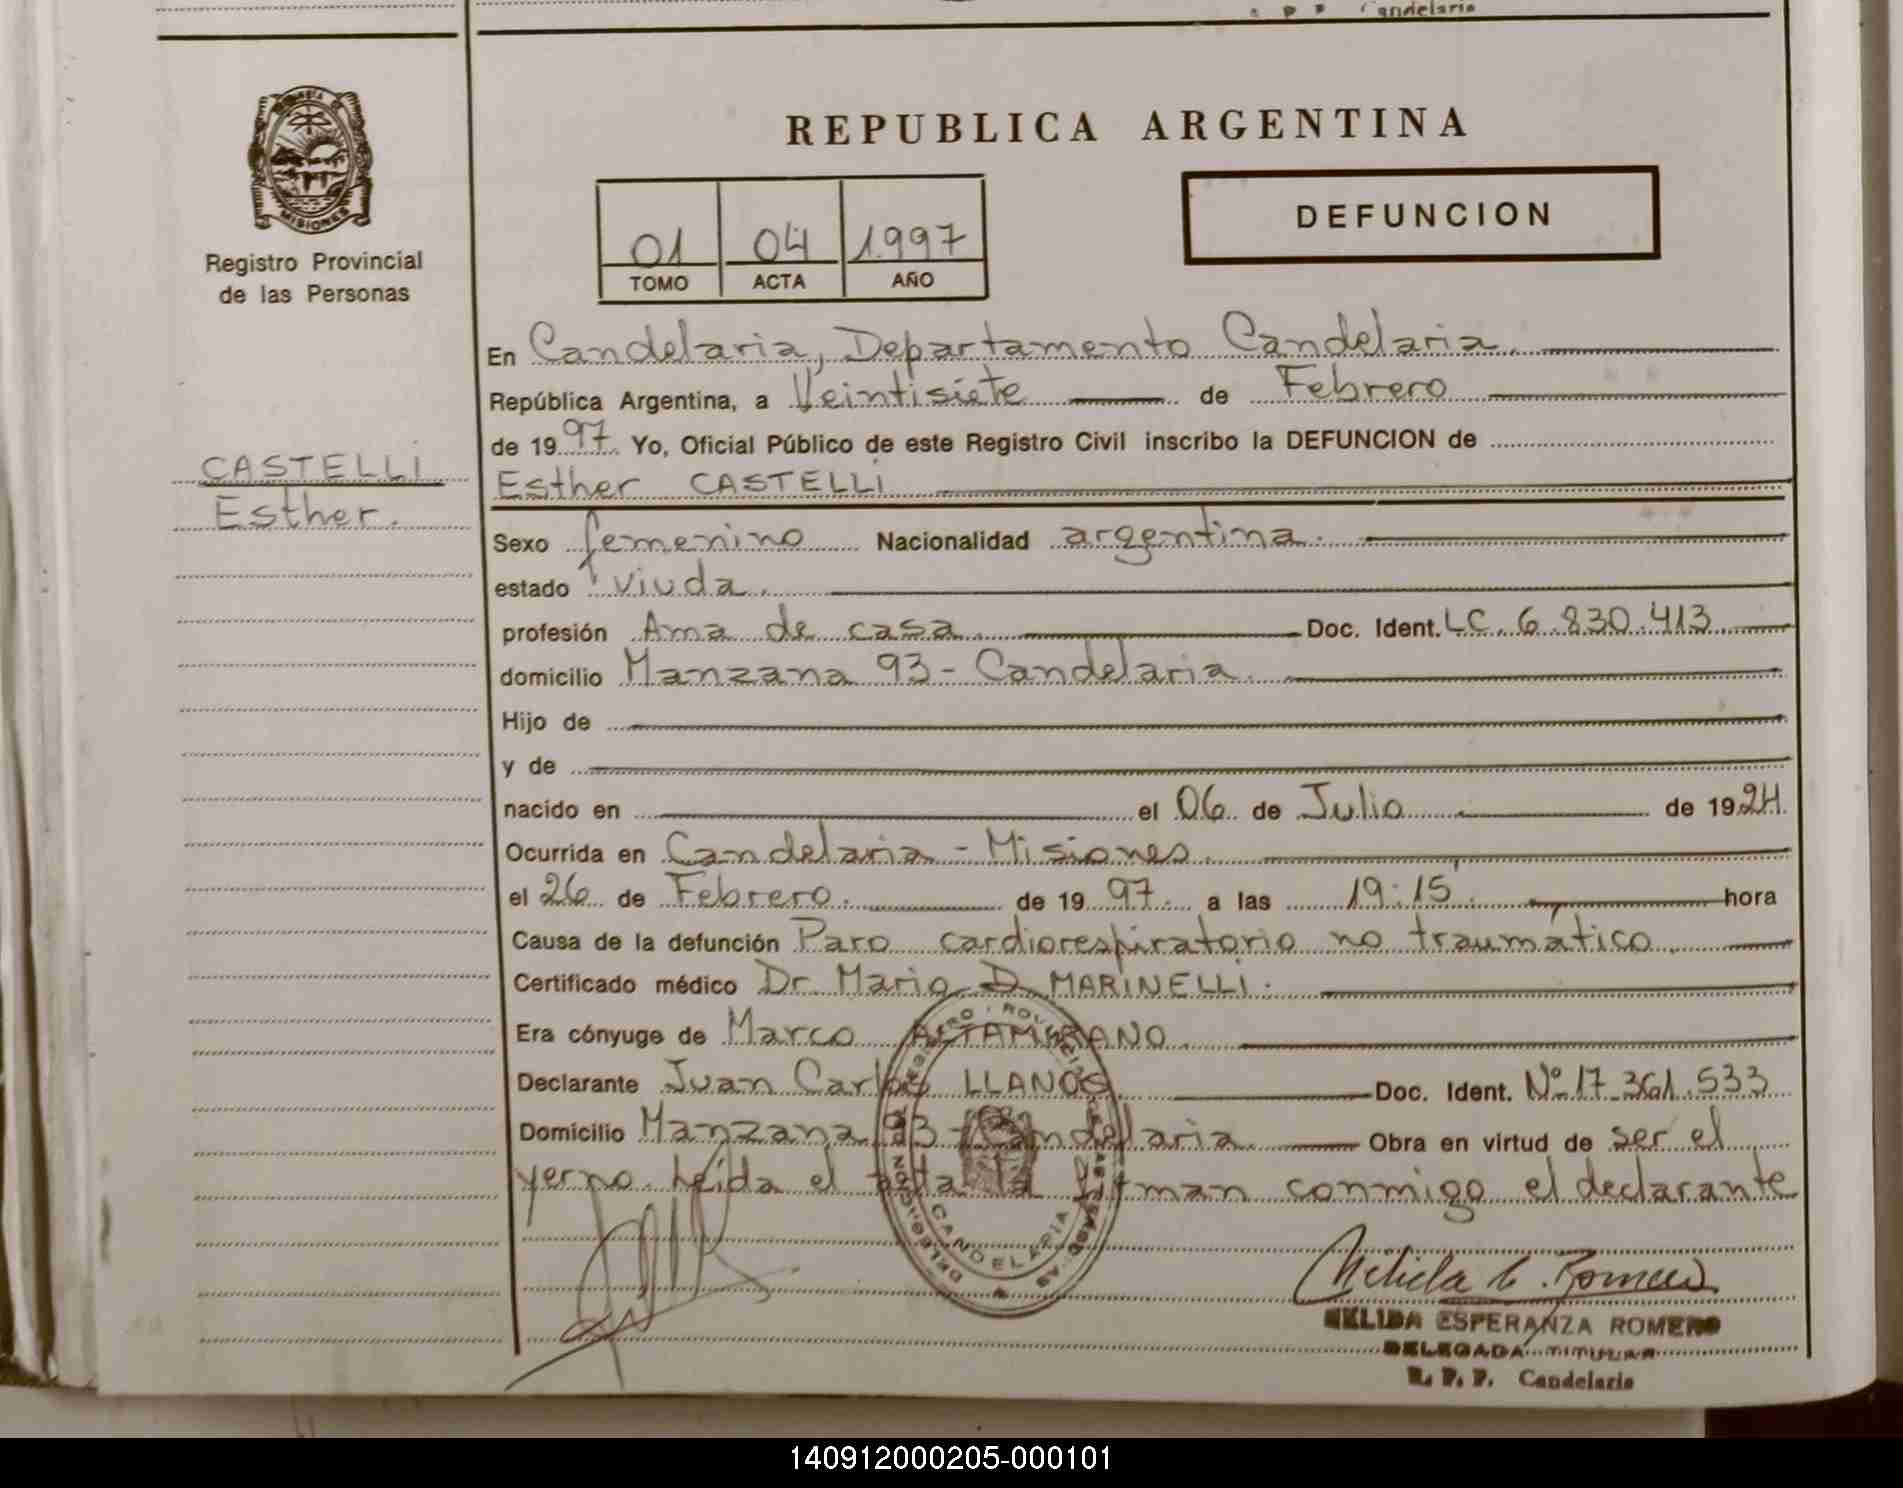 Candelaria
REPUBLICA ARGENTINA
MISIONES
Registro Provincial
de las Personas
DEFUNCION
01 04 1997
TOMO ACTA AÑO
En Candelaria, Departamento Candelaria.
República Argentina, a Veintisiete de Febrero
de 1997. Yo, Oficial Público de este Registro Civil inscribo la DEFUNCION de
CASTELLI
Esther.
Esther CASTELLI
Sexo femenino Nacionalidad argentina.
estado viuda.
profesión Ama de casa. Doc. Ident. LC. 6.830.413
domicilio Manzana 93 - Candelaria.
Hijo de
y de
nacido en el 06 de Julio de 1924.
Ocurrida en Candelaria - Misiones.
el 26 de Febrero. de 1997. a las 19:15'. hora
Causa de la defunción Paro cardiorespiratorio no traumático.
Certificado médico Dr. Mario D. MARINELLI.
Era cónyuge de Marco ALTAMIRANO.
Declarante Juan Carlos LLANOS Doc. Ident. Nº 17.361.533
Domicilio Manzana 93 - Candelaria. Obra en virtud de ser el
yerno. Leída el acta la firman conmigo el declarante
DELEGACION CANDELARIA
Nelida E. Romero
NELIDA ESPERANZA ROMERO
DELEGADA TITULAR
R. P. P. Candelaria
140912000205-000101